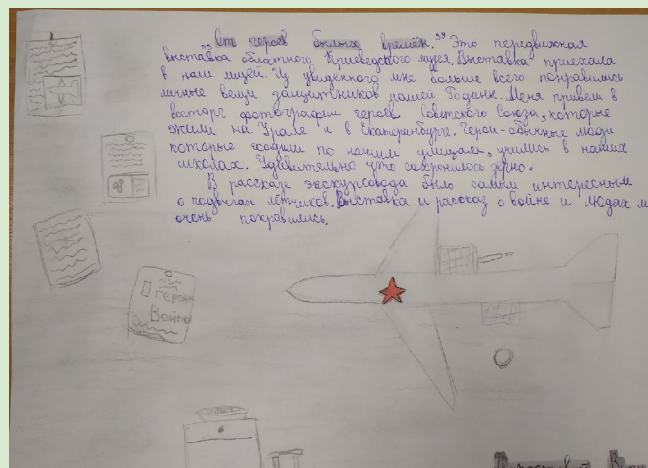 „От героев былых времён." Это передвижная
выставка областного Краеведского музея. Выставка приехала
в наш музей. Из увиденного мне больше всего понравились
личные вещи защитников нашей Родины. Меня привели в
восторг фотографии героев Советского Союза, которые
жили на Урале и в Екатеринбурге. Герои-обычные люди
которые ходили по нашим улицам, учились в наших
школах. Удивительно что сохранилось
В рассказе экскурсовода было самым интересным
о подвигах лётчиков. Выставка и рассказ о войне и людях м
очень понравились.
Герои
Войны